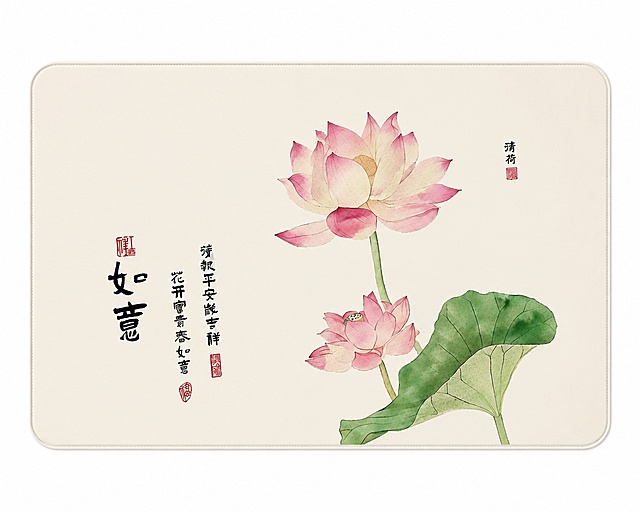 清荷
清报平安岁吉祥
花开富贵春如意
如意